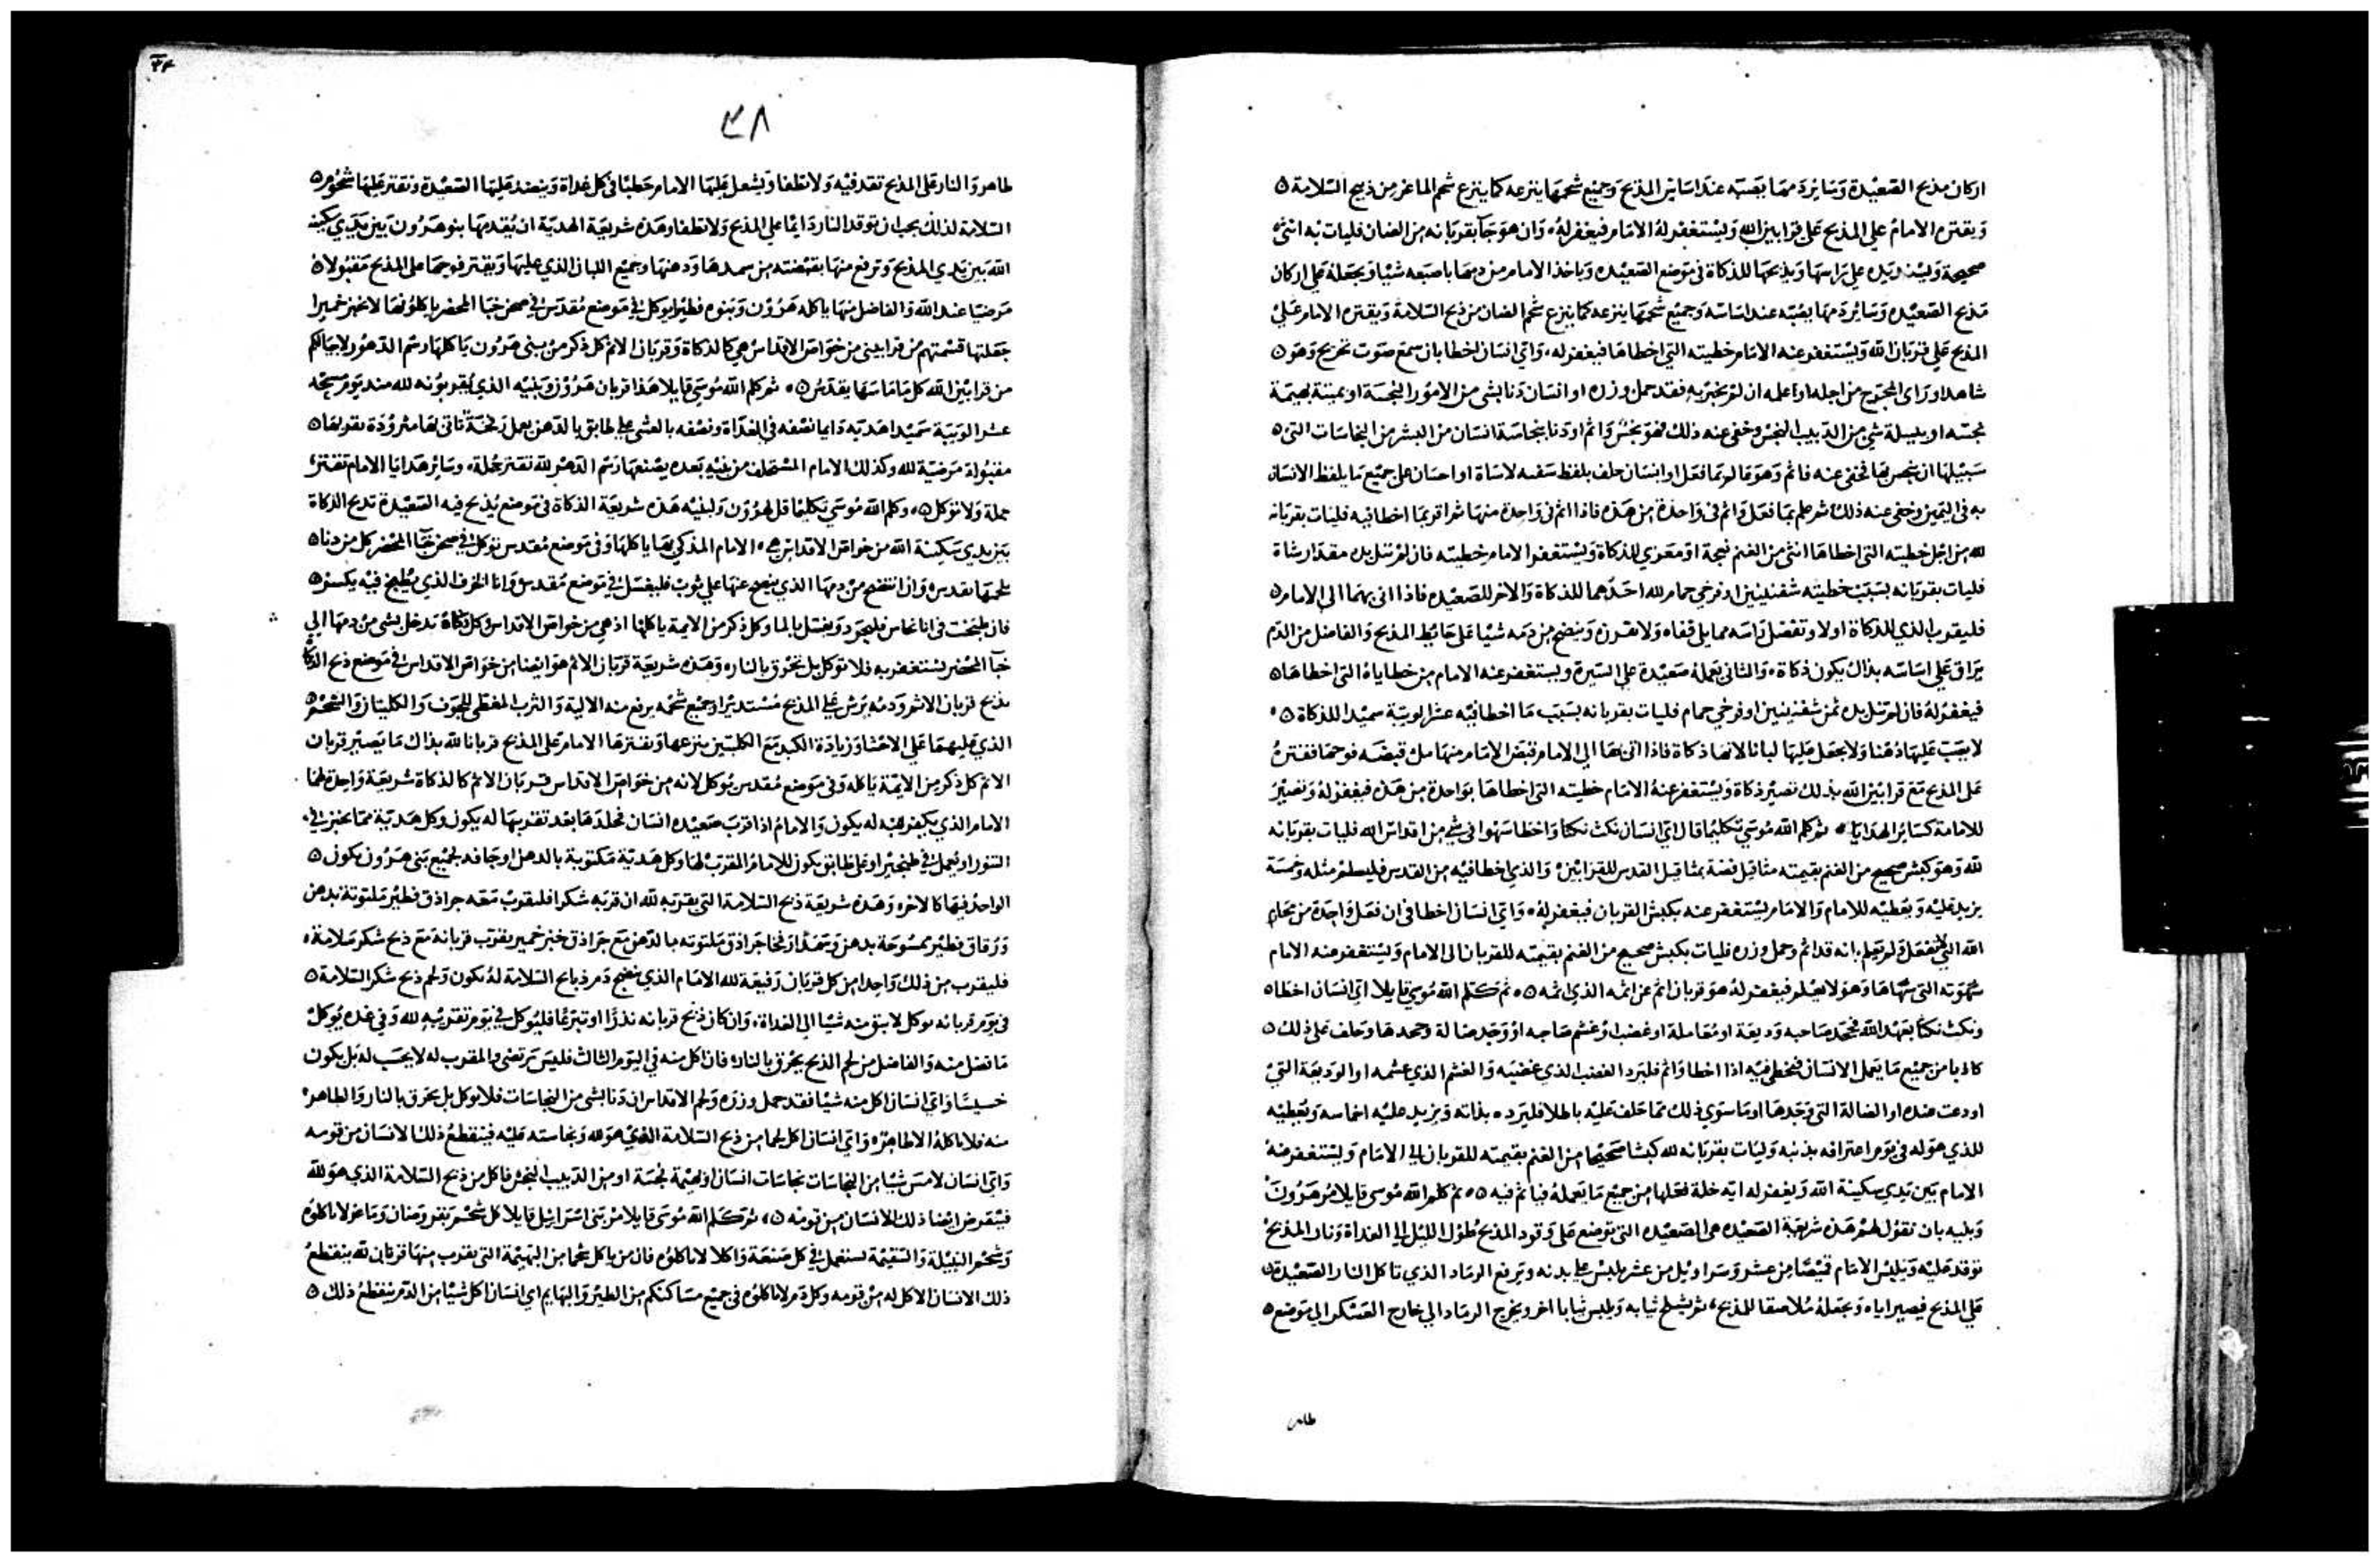 اركان مذبح الصعيدة وسائر دمها يصبه عند اساس المذبح وجميع شحمها ينزعه كما ينزع شحم الماعز من ذبيح السلامة
ويقتره الامام علي المذبح علي قرابين الله ويستغفر له الامام فيغفر له وان هو جآ بقربانه من الضان فليات به انثى
صحيحة ويسند يده علي راسها ويذبحها للذكاة في موضع الصعيده وياخذ الامام من دمها باصبعه شيا ويجعله علي اركان
مذبح الصعيده وسائر دمها يصبه عند اساسه وجميع شحمها ينزعه كما ينزع شحم الضان من ذبح السلامة ويقتره الامام علي
المذبح علي قربان الله ويستغفر عنه الامام خطيته التي اخطاها فيغفر له واي انسان اخطا بان سمع صوت تحريج وهو
شاهد او راى المحتوج من اجله او اعلمه ان لم يخبر به فقد حمل وزره او انسان دنا بشي من الامور النجسة او بميتة بهيمة
نجسه او بنبيلة شي من الدبيب النجس وخفي عنه ذلك فهو نجس واثم او دنا بنجاسة انسان من البشر من النجاسات التي
سبيلها ان ينجس بها فخفي عنه فاثم وهو مما لو بما فعل او انسان حلف بلفظ شفته لاساة او احسان علي جميع ما يلفظ الانسان
به في اليمين وخفي عنه ذلك ثم علم بما فعل واثم في واحدة من هذه فاذا اثم في واحدة منها ثم اقر بما اخطا فيه فليات بقربانه
لله من اجل خطيته التي اخطاها انثي من الغنم نعجة او معزي للذكاة ويستغفر الامام خطيته فان لم تنل يده مقدار شاة
فليات بقربانه بسبب خطيته شفنينين او فرخي حمام لله احدهما للذكاة والاخر للصعيده فاذا اتى بهما الى الامام
فليقرب الذي للذكاة اولا وتفصل راسه مما يلي قفاه ولا تفرزه وينضح من دمه شيا علي حايط المذبح والفاضل من الدم
يراق علي اساسه بذاك يكون ذكاة والثاني يعمله صعيدة علي السيرة ويستغفر عنه الامام من خطاياه التي اخطاها
فيغفر له فان لم تنل يده ثمن شفنينين او فرخي حمام فليات بقربانه بسبب ما اخطا فيه عشر الويبة سميدا للذكاة
لا يصب عليها دهنا ولا يجعل عليها لبانا لانها ذكاة فاذا اتى بها الي الامام قبض الامام منها مل قبضه فوحها فقتره
على المذبح مع قرابين الله بذلك تصير ذكاة ويستغفر عنه الامام خطيته التي اخطاها بواحدة من هذه فيغفر له وتصير
للامامة كسائر الهدايا ثم كلم الله موسي تكليما قال اي انسان نكث نكثا واخطا سهوا في شي من اقداس الله فليات بقربانه
لله وهو كبش صحيح من الغنم بقيمته مثاقيل فضة بمثاقيل القدس للقرابين والذي اخطا فيه من القدس فليسلم مثله وخمسة
يزيد عليه ويعطيه للامام والامام يستغفر عنه بكبش القربان فيغفر له واي انسان اخطا في ان فعل واحدة من محارم
الله التي لا تفعل ولم يعلم انه قد اثم وحمل وزره فليات بكبش صحيح من الغنم بقيمته للقربان الى الامام ويستغفر عنه الامام
سهوته التي سهاها وهو لا يعلم فيغفر له هو قربان اثم عن اثمه الذي اثمه ثم كلم الله موسي قايلا اي انسان اخطا
ونكث نكثا بعهد الله فجحد صاحبه وديعة او معاملة او غصب او غشم صاحبه او وجد ضالة وجحدها وحلف علي ذلك
كاذبا من جميع ما يعمل الانسان فيخطي فيه اذا اخطا واثم فليرد الغصب الذي غصبه والغشم الذي غشمه او الوديعة التي
اودعت عنده او الضالة التي وجدها او ما سوي ذلك مما حلف عليه باطلا فليرده بذاته ويزيد عليه اخماسه ويعطيه
للذي هو له في يوم اعترافه بذنبه وليات بقربانه لله كبشا صحيحا من الغنم بقيمته للقربان الي الامام ويستغفر عنه
الامام بين يدي سكينة الله ويغفر له ايه خلة فعلها من جميع ما يعمله فياثم فيه ثم كلم الله موسى قايلا مر هرون
وبنيه بان تقول لهم هذه شريعة الصعيده هي الصعيده التي توضع علي وقود المذبح طول الليل الي الغداة ونار المذبح
توقد عليه ويلبس الامام قميصا من عشر وسراويل من عشر يلبس علي بدنه ويرفع الرماد الذي تاكل النار الصعيدة
علي المذبح فيصير اياه ويجعله ملاصقا للمذبح ثم يشلح ثيابه ويلبس ثيابا اخر ويخرج الرماد الي خارج العسكر الي موضع
طاهر
٣٨
طاهر والنار علي المذبح تقد فيه ولا تطفا ويشعل عليها الامام حطبا في كل غداة وينضد عليها الصعيدة وتقتر عليها شحوم
السلامة لذلك يجب ان توقد النار دايما علي المذبح ولا تطفا وهذه شريعة الهدية ان يقدمها بنو هرون بين يدي سكينة
الله بين يدي المذبح وترفع منها بقبضته من سمدها ودهنها وجميع اللبان الذي عليها ويقتر فوحها على المذبح مقبولا
مرضيا عند الله والفاضل منها ياكله هرون وبنوه فطيرا يوكل في موضع مقدس في صحن خبا المحضر ياكلونها لا تخبز خميرا
جعلتها قسمتهم من قرابيني من خواص الاقداس هي كالذكاة وقربان الاثم كل ذكر من بني هرون ياكلها رسم الدهور لاجيالكم
من قرابين الله كل ما ماسها يقدس ثم كلم الله موسي قايلا هذا قربان هرون وبنيه الذي يقربونه لله منذ يوم مسحه
عشر الويبة سميدا هدية دايما نصفه في الغداة ونصفه بالعشي علي طابق بالدهن يعمل رخفة تاتي بها مثرودة تقربها
مقبولة مرضية لله وكذلك الامام المستخلف من بنيه بعده يصنعها رسم الدهر لله تقتر جملة وسائر هدايا الامام تقتر
جملة ولا توكل وكلم الله موسي تكليما قل لهرون ولبنيه هذه شريعة الذكاة في موضع يذبح فيه الصعيدة تذبح الذكاة
بين يدي سكينة الله من خواص الاقداس هي الامام المذكي بها ياكلها وفي موضع مقدس توكل في صحن خبآ المحضر كل من دنا
بلحمها يقدس وان انتضح من دمها الذي ينضح عنها علي ثوب فليغسل في موضع مقدس وانا الخزف الذي يطبخ فيه يكسر
فان طبخت في انا نحاس فليجرد ويغسل بالما وكل ذكر من الايمة ياكلها اذ هي من خواص الاقداس وكل ذكاة تدخل بشي من دمها الي
خبآ المحضر يستغفر به فلا توكل بل تحرق بالنار وهذه شريعة قربان الاثم هو ايضا من خواص الاقداس في موضع ذبح الذكاة
يذبح قربان الاثم ودمه يرش علي المذبح مستديرا وجميع شحمه يرفع منه الالية والثرب المغطي للجوف والكليتان والشحم
الذي عليهما علي الاحشا وزيادة الكبد مع الكليتين ينزعها ويقترها الامام علي المذبح قربانا لله بذاك ما يصير قربان
الاثم كل ذكر من الايمة ياكله وفي موضع مقدس يوكل لانه من خواص الاقداس قربان الاثم كالذكاة شريعة واحدة لهما
الامام الذي يكفر به له يكون والامام اذا قرب صعيده انسان فجلدها بعد تقديمها له يكون وكل هدية مما تخبز في
التنور او يعمل في طنجير او علي طابق يكون للامام المقرب لها وكل هدية ملتوتة بالدهن او جافه لجميع بني هرون يكون
الواحد فيها كالاخر وهذه شريعة ذبح السلامة التي يقربه لله ان قربه شكرا فليقرب معه جرادق فطير ملتوتة بدهن
ورقاق فطير ممسوحة بدهن وسمدا رخفا جرادق ملتوته بالدهن مع جرادق خبز خمير يقرب قربانه مع ذبح شكر سلامة
فليقرب من ذلك واحدا من كل قربان رفيعة لله الامام الذي ينضح دم ذبايح السلامة له يكون ولحم ذبح شكر السلامة
في يوم قربانه يوكل لا يبق منه شيا الي الغداة وان كان ذبح قربانه نذرا او تبرعا فليوكل في يوم تقريبه لله وفي غده يوكل
ما فضل منه والفاضل من لحم الذبح يحرق بالنار فان اكل منه في اليوم الثالث فليس يرتضي والمقرب له لا يحسب له بل يكون
خسيسا واي انسان اكل منه شيا فقد حمل وزره ولحم الاقداس ان دنا بشي من النجاسات فلا يوكل بل يحرق بالنار والطاهر
منه فلا ياكله الا طاهر واي انسان اكل لحما من ذبح السلامة الذي هو لله ونجاسته عليه فينقطع ذلك الانسان من قومه
واي انسان لامس شيا من النجاسات نجاسات انسان او بهيمة نجسة او من الدبيب النجس فاكل من ذبح السلامة الذي هو لله
فينقرض ايضا ذلك الانسان من قومه ثم كلم الله موسى قايلا مر بني اسرائيل قايلا كل شحم بقر وضان وماعز لا تاكلوه
وشحم النبيلة والسقيمة يستعمل في كل صنعة واكلا لا تاكلوه فان من ياكل شحما من البهيمة التي يقرب منها قربان لله ينقطع
ذلك الانسان الاكل له من قومه وكل دم لا تاكلوه في جميع مساكنكم من الطير والبهايم اي انسان اكل شيا من الدم ينقطع ذلك